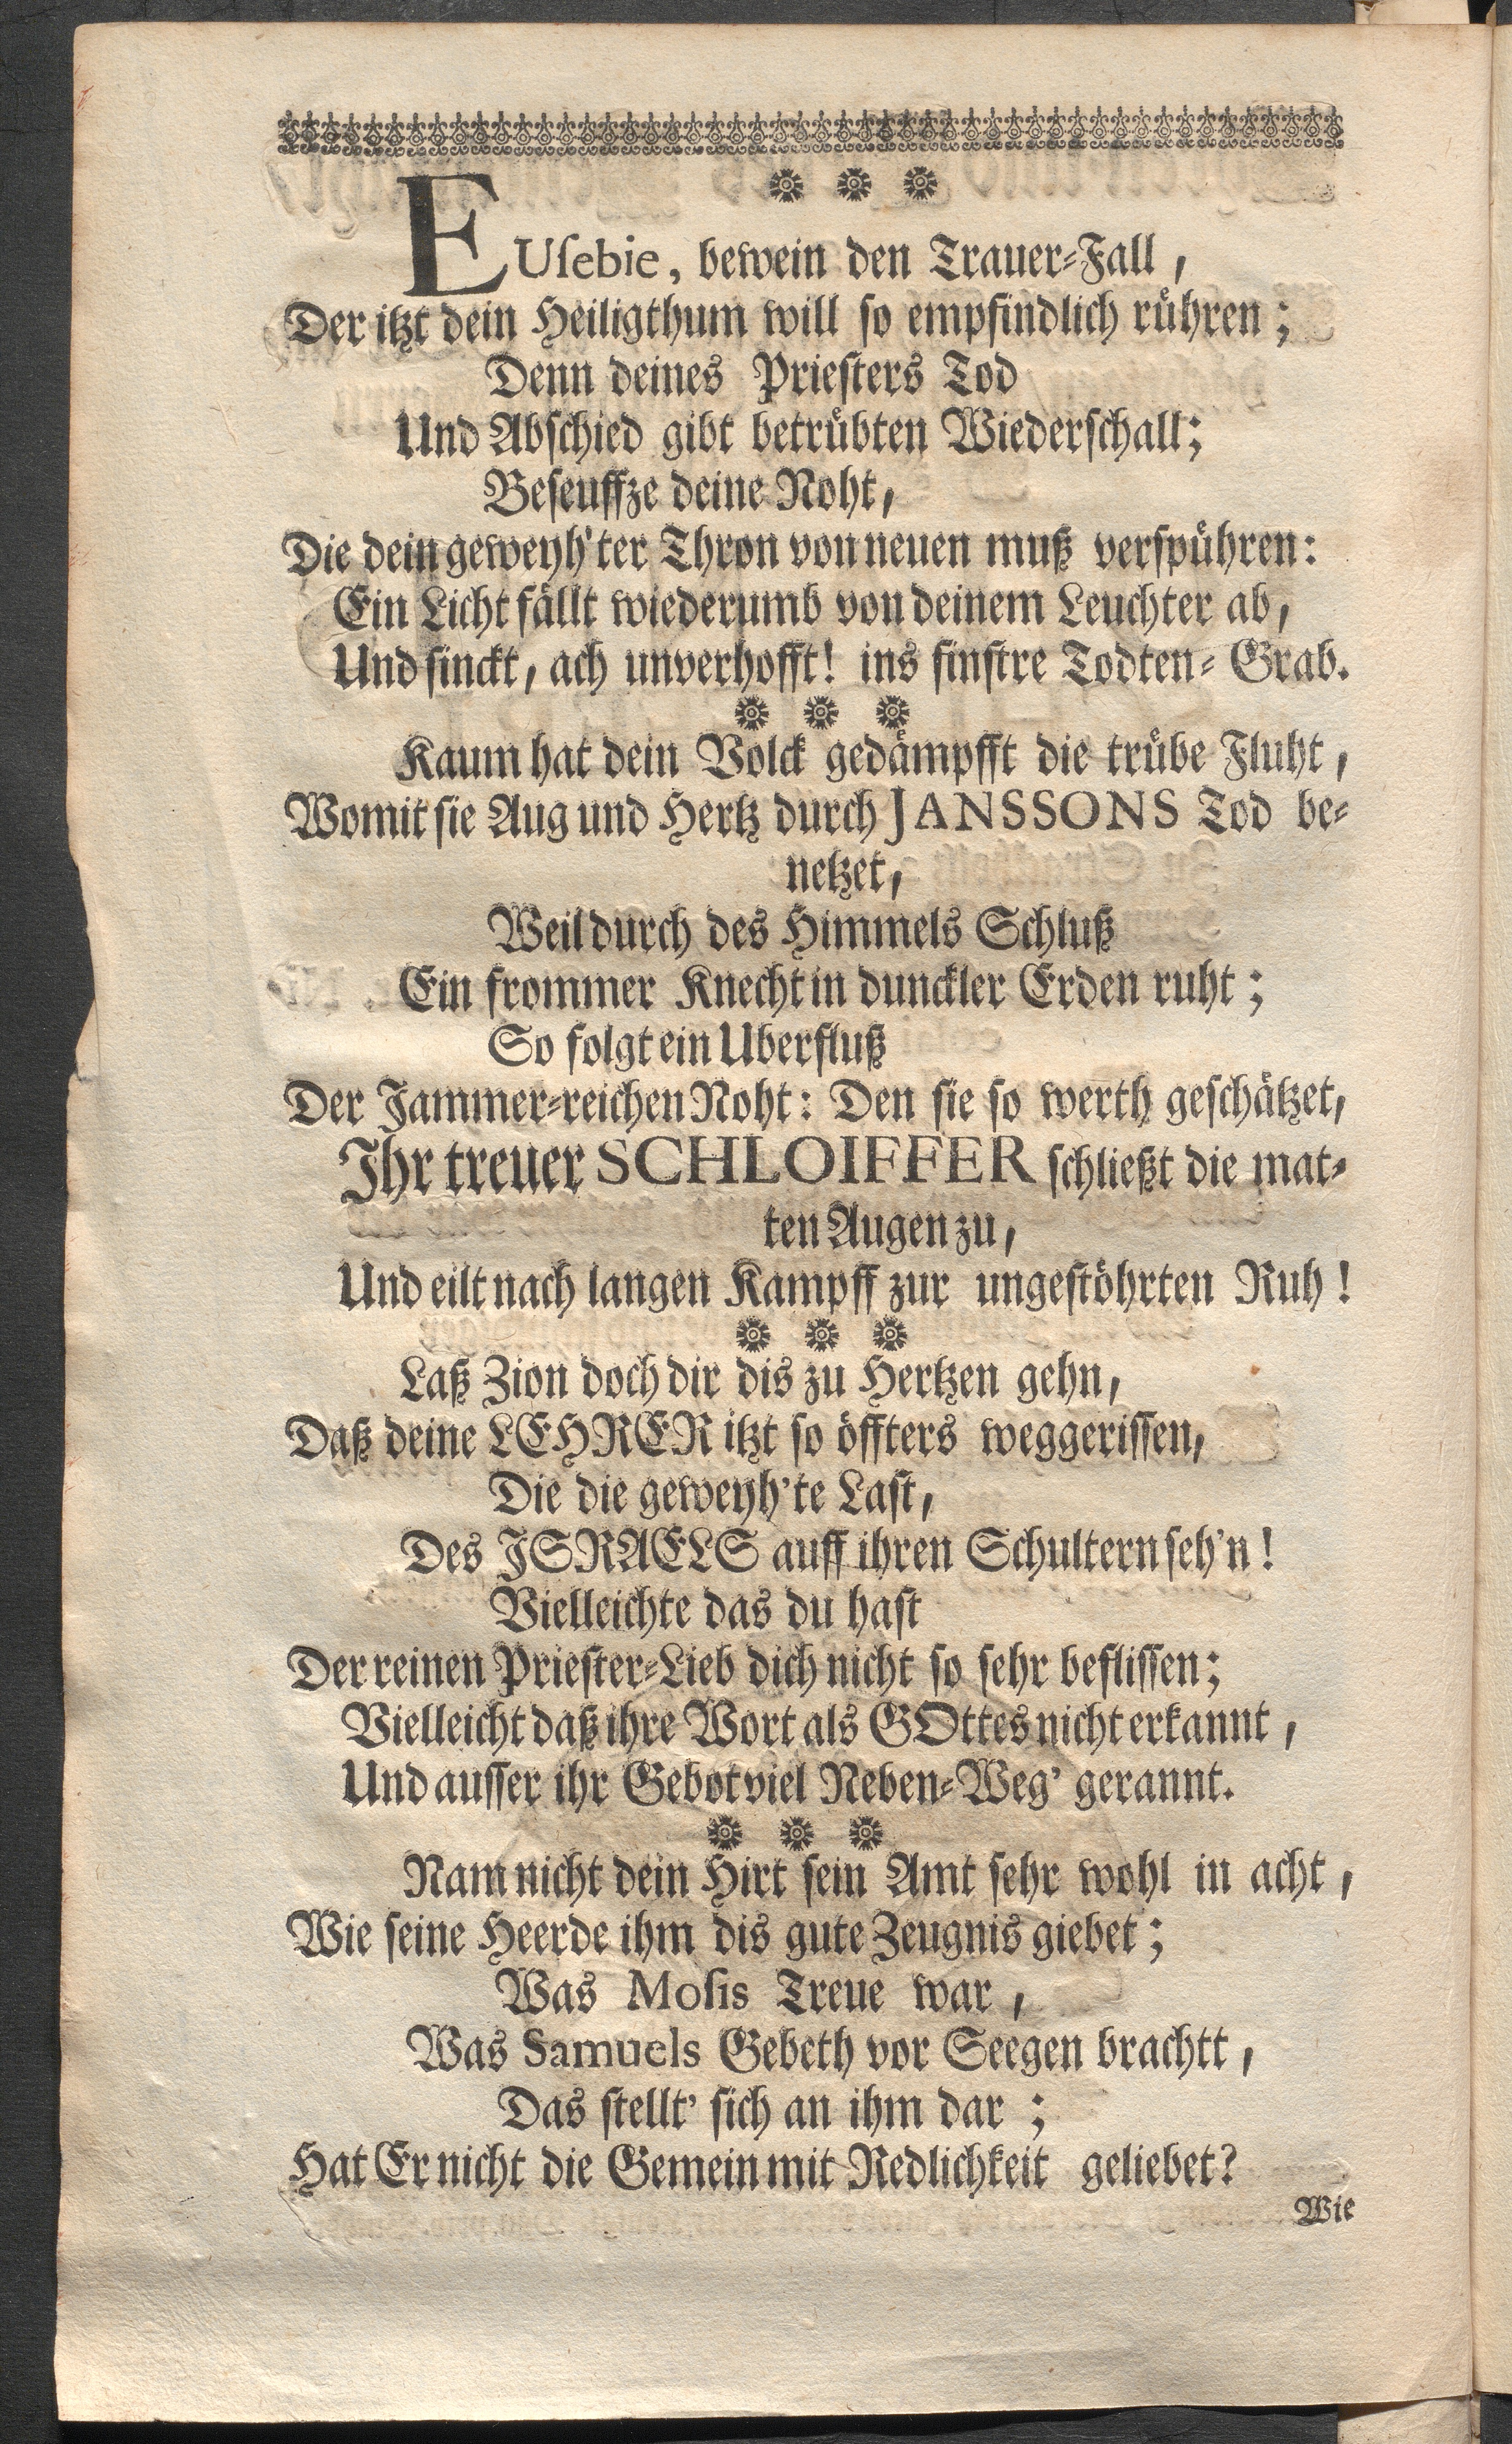 EUſebie, bewein den Trauer-Fall,
Der itzt dein Heiligthum will ſo empfindlich rühren;
Denn deines Prieſters Tod
Und Abſchied gibt betrübten Wiederſchall;
Beſeuffze deine Noht,
Die dein geweyh'ter Thron von neuen muß verſpühren:
Ein Licht fällt wiederumb von deinem Leuchter ab,
Und ſinckt, ach unverhofft! ins finſtre Todten-Grab.
Kaum hat dein Volck gedämpfft die trübe Fluht,
Womit ſie Aug und Hertz durch JANSSONS Tod be-
netzet,
Weil durch des Himmels Schluß
Ein frommer Knecht in dunckler Erden ruht;
So folgt ein Uberfluß
Der Jammer-reichen Noht: Den ſie ſo werth geſchätzet,
Ihr treuer SCHLOIFFER ſchließt die mat-
ten Augen zu,
Und eilt nach langen Kampff zur ungeſtöhrten Ruh!
Laß Zion doch dir dis zu Hertzen gehn,
Daß deine LEHRER itzt ſo öffters weggeriſſen,
Die die geweyh'te Laſt,
Des ISRAELS auff ihren Schultern ſeh'n!
Vielleichte das du haſt
Der reinen Prieſter-Lieb dich nicht ſo ſehr befliſſen;
Vielleicht daß ihre Wort als GOttes nicht erkannt,
Und auſſer ihr Gebot viel Neben-Weg' gerannt.
Nam nicht dein Hirt ſein Amt ſehr wohl in acht,
Wie ſeine Heerde ihm dis gute Zeugnis giebet;
Was Moſis Treue war,
Was Samuels Gebeth vor Seegen brachtt,
Das ſtellt' ſich an ihm dar;
Hat Er nicht die Gemein mit Redlichkeit geliebet?
Wie